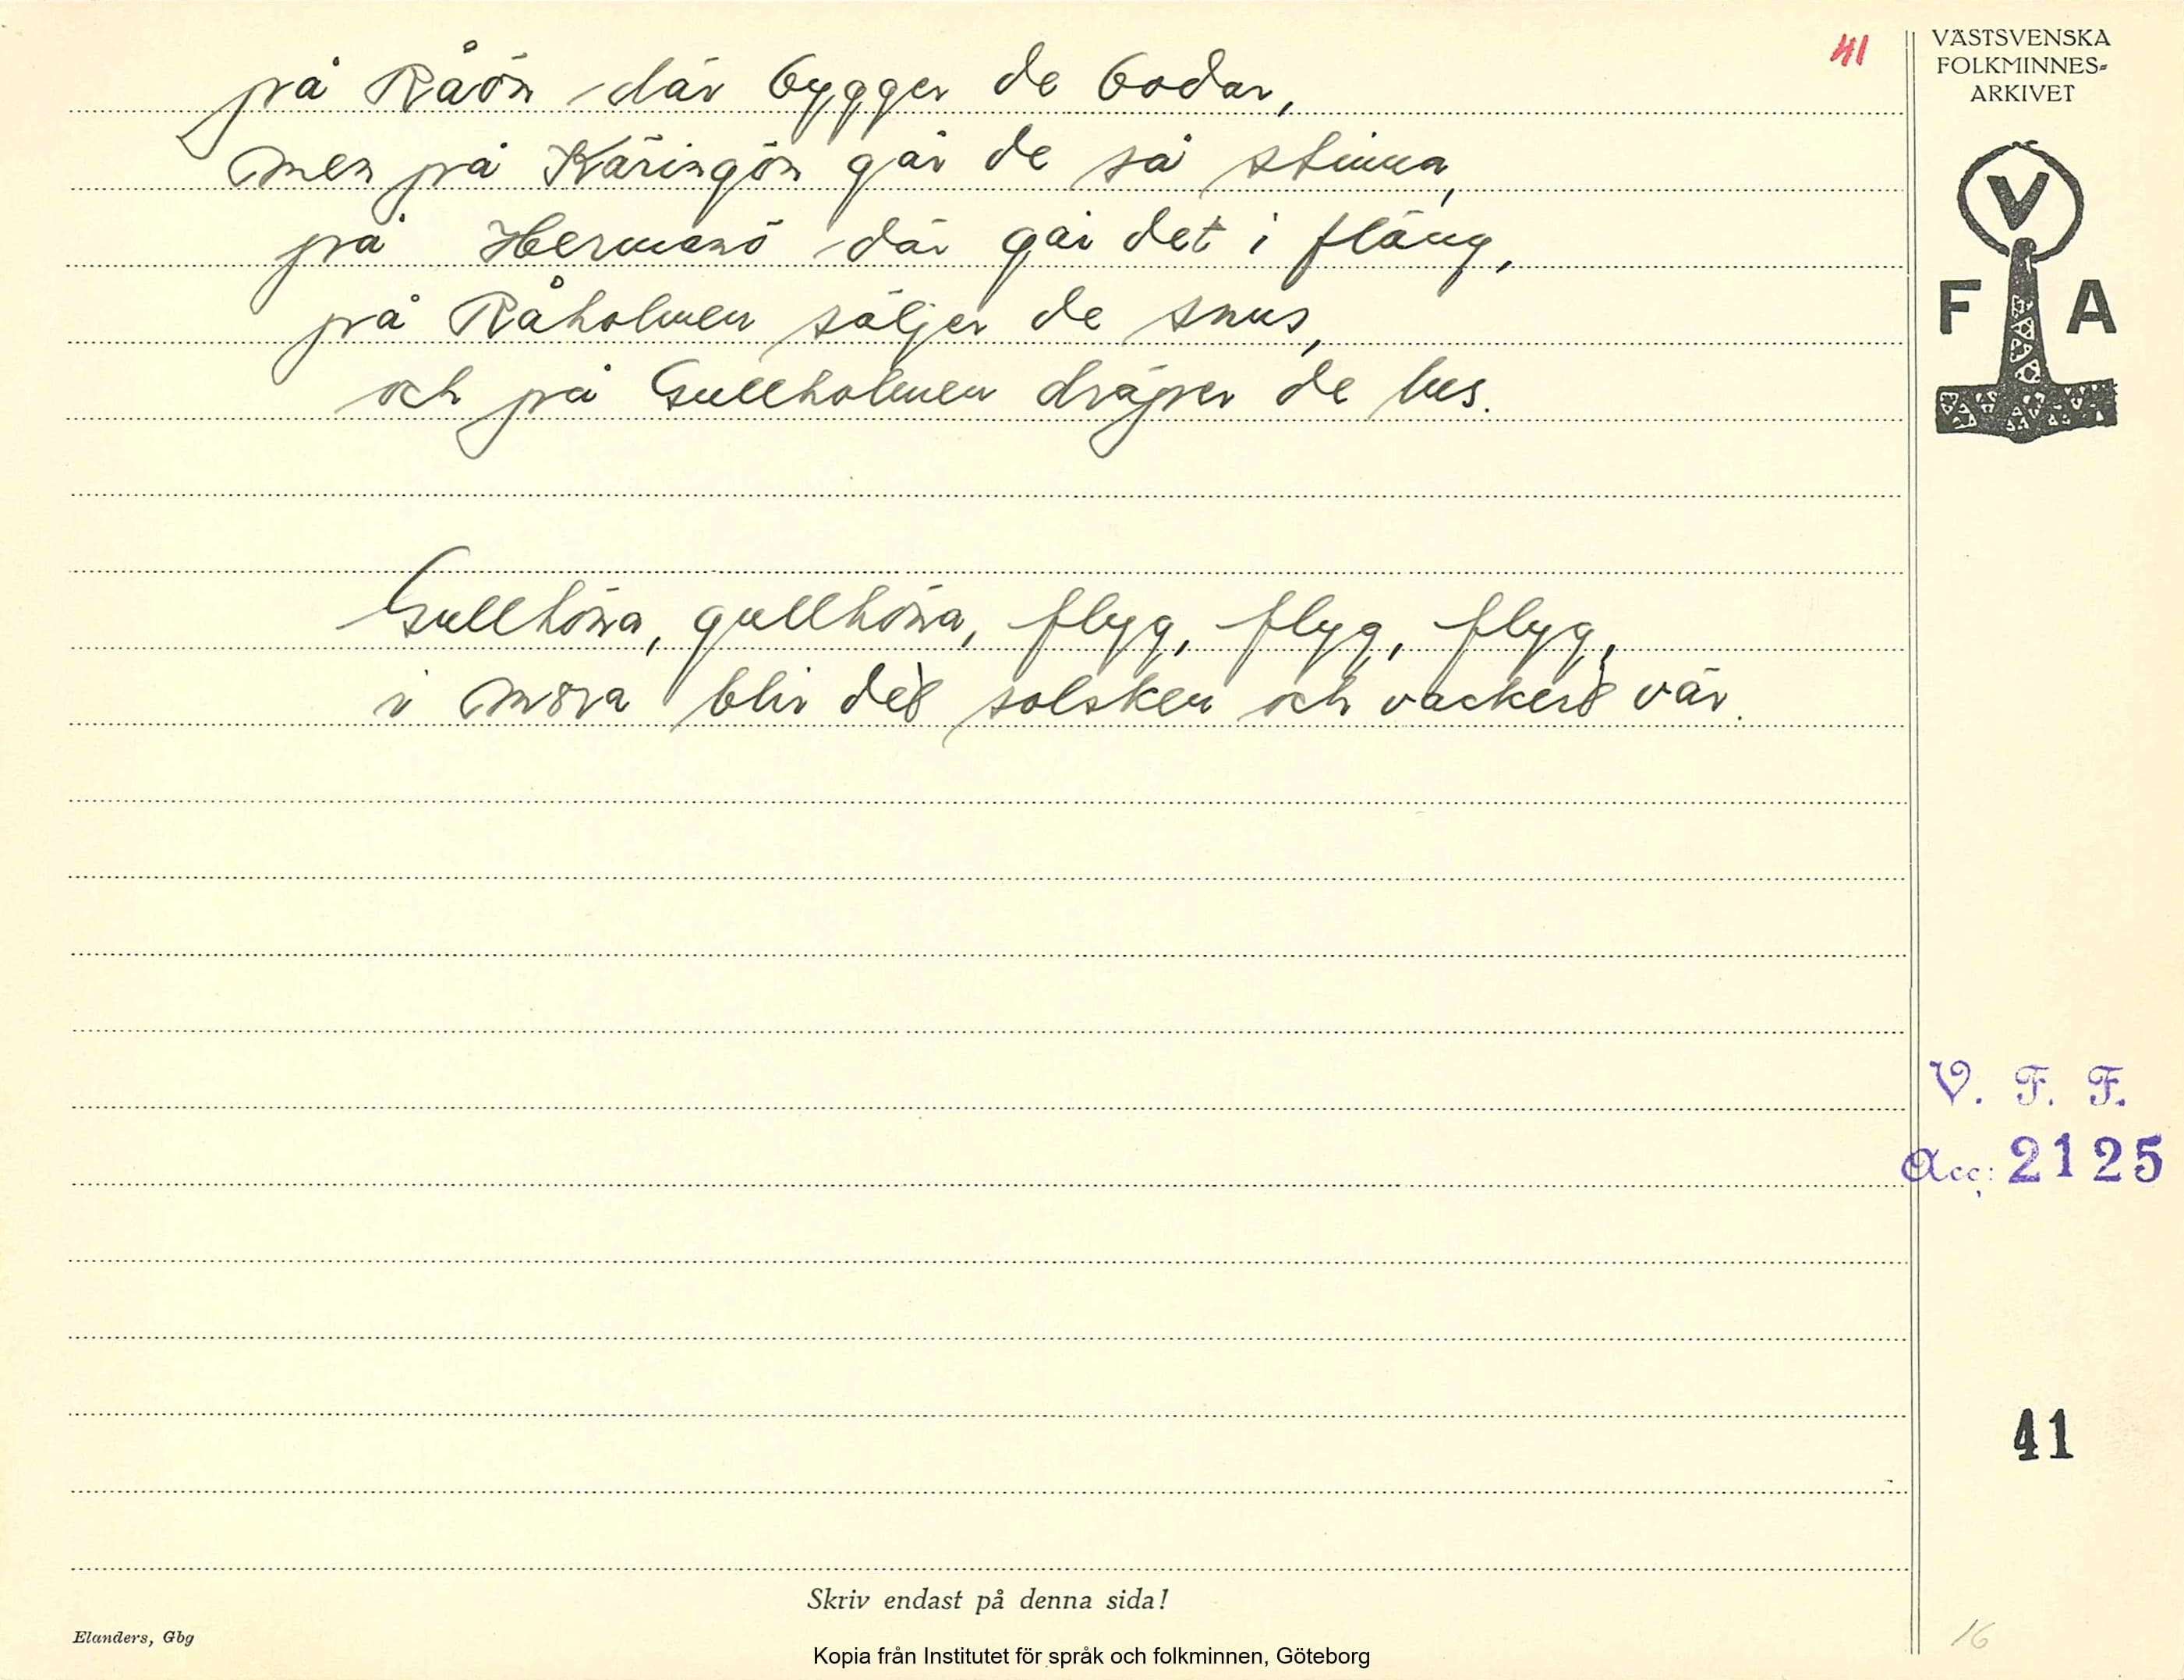 41
på Råön där bygger de bodar,
men på Käringön går de så stinna,
på Hermanö där går det i fläng,
på Råholmen säljer de snus,
och på Gullholmen dräper de lus.
Gullhöna, gullhöna, flyg, flyg, flyg,
i mora blir det solsken och vackert vär.
VÄSTSVENSKA
FOLKMINNES-
ARKIVET
V
F A
V. F. F.
Acc: 2125
41
Skriv endast på denna sida!
Elanders, Gbg
16
Kopia från Institutet för språk och folkminnen, Göteborg